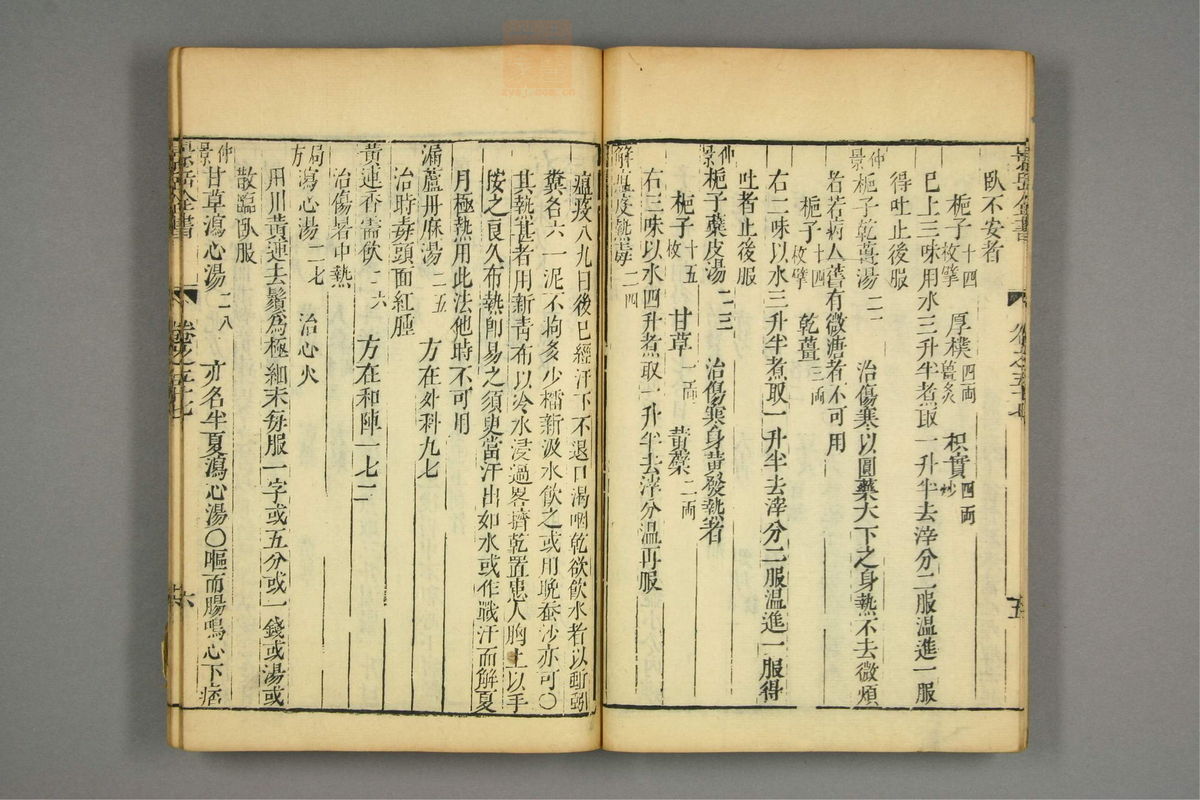 臥不安者
梔子十四枚擘 厚樸四両薑炙 枳實四両炒
已上三味用水三升半煮取一升半去滓分二服溫進一服
得吐止後服
仲景梔子乾薑湯二二 治傷寒以圓藥大下之身熱不去微煩
者若病人舊有微溏者不可用
梔子十四枚擘 乾薑三両
右二味以水三升半煮取一升半去滓分二服溫進一服得
吐者止後服
仲景梔子蘗皮湯二三 治傷寒身黃發熱者
梔子十五枚 甘草一両 黃蘗二両
右三味以水四升煮取一升半去滓分溫再服
解瘟疫熱毒二四
五
瘟疫八九日後已經汗下不退口渴咽乾欲飲水者以蚯蚓
糞名六一泥不拘多少擂新汲水飲之或用晚蚕沙亦可〇
其熱甚者用新青布以冷水浸過畧擠乾置患人胸上以手
按之良久布熱卽易之須臾當汗出如水或作戰汗而解夏
月極熱用此法他時不可用
漏蘆升麻湯二五 方在外科九七
治時毒頭面紅腫
黃連香薷飲二六 方在和陣一七二
治傷暑中熱
局方瀉心湯二七 治心火
用川黃連去鬚為極細末每服一字或五分或一錢或湯或
散臨臥服
仲景甘草瀉心湯二八 亦名半夏瀉心湯〇嘔而腸鳴心下痞
景岳全書 卷之五十七 六